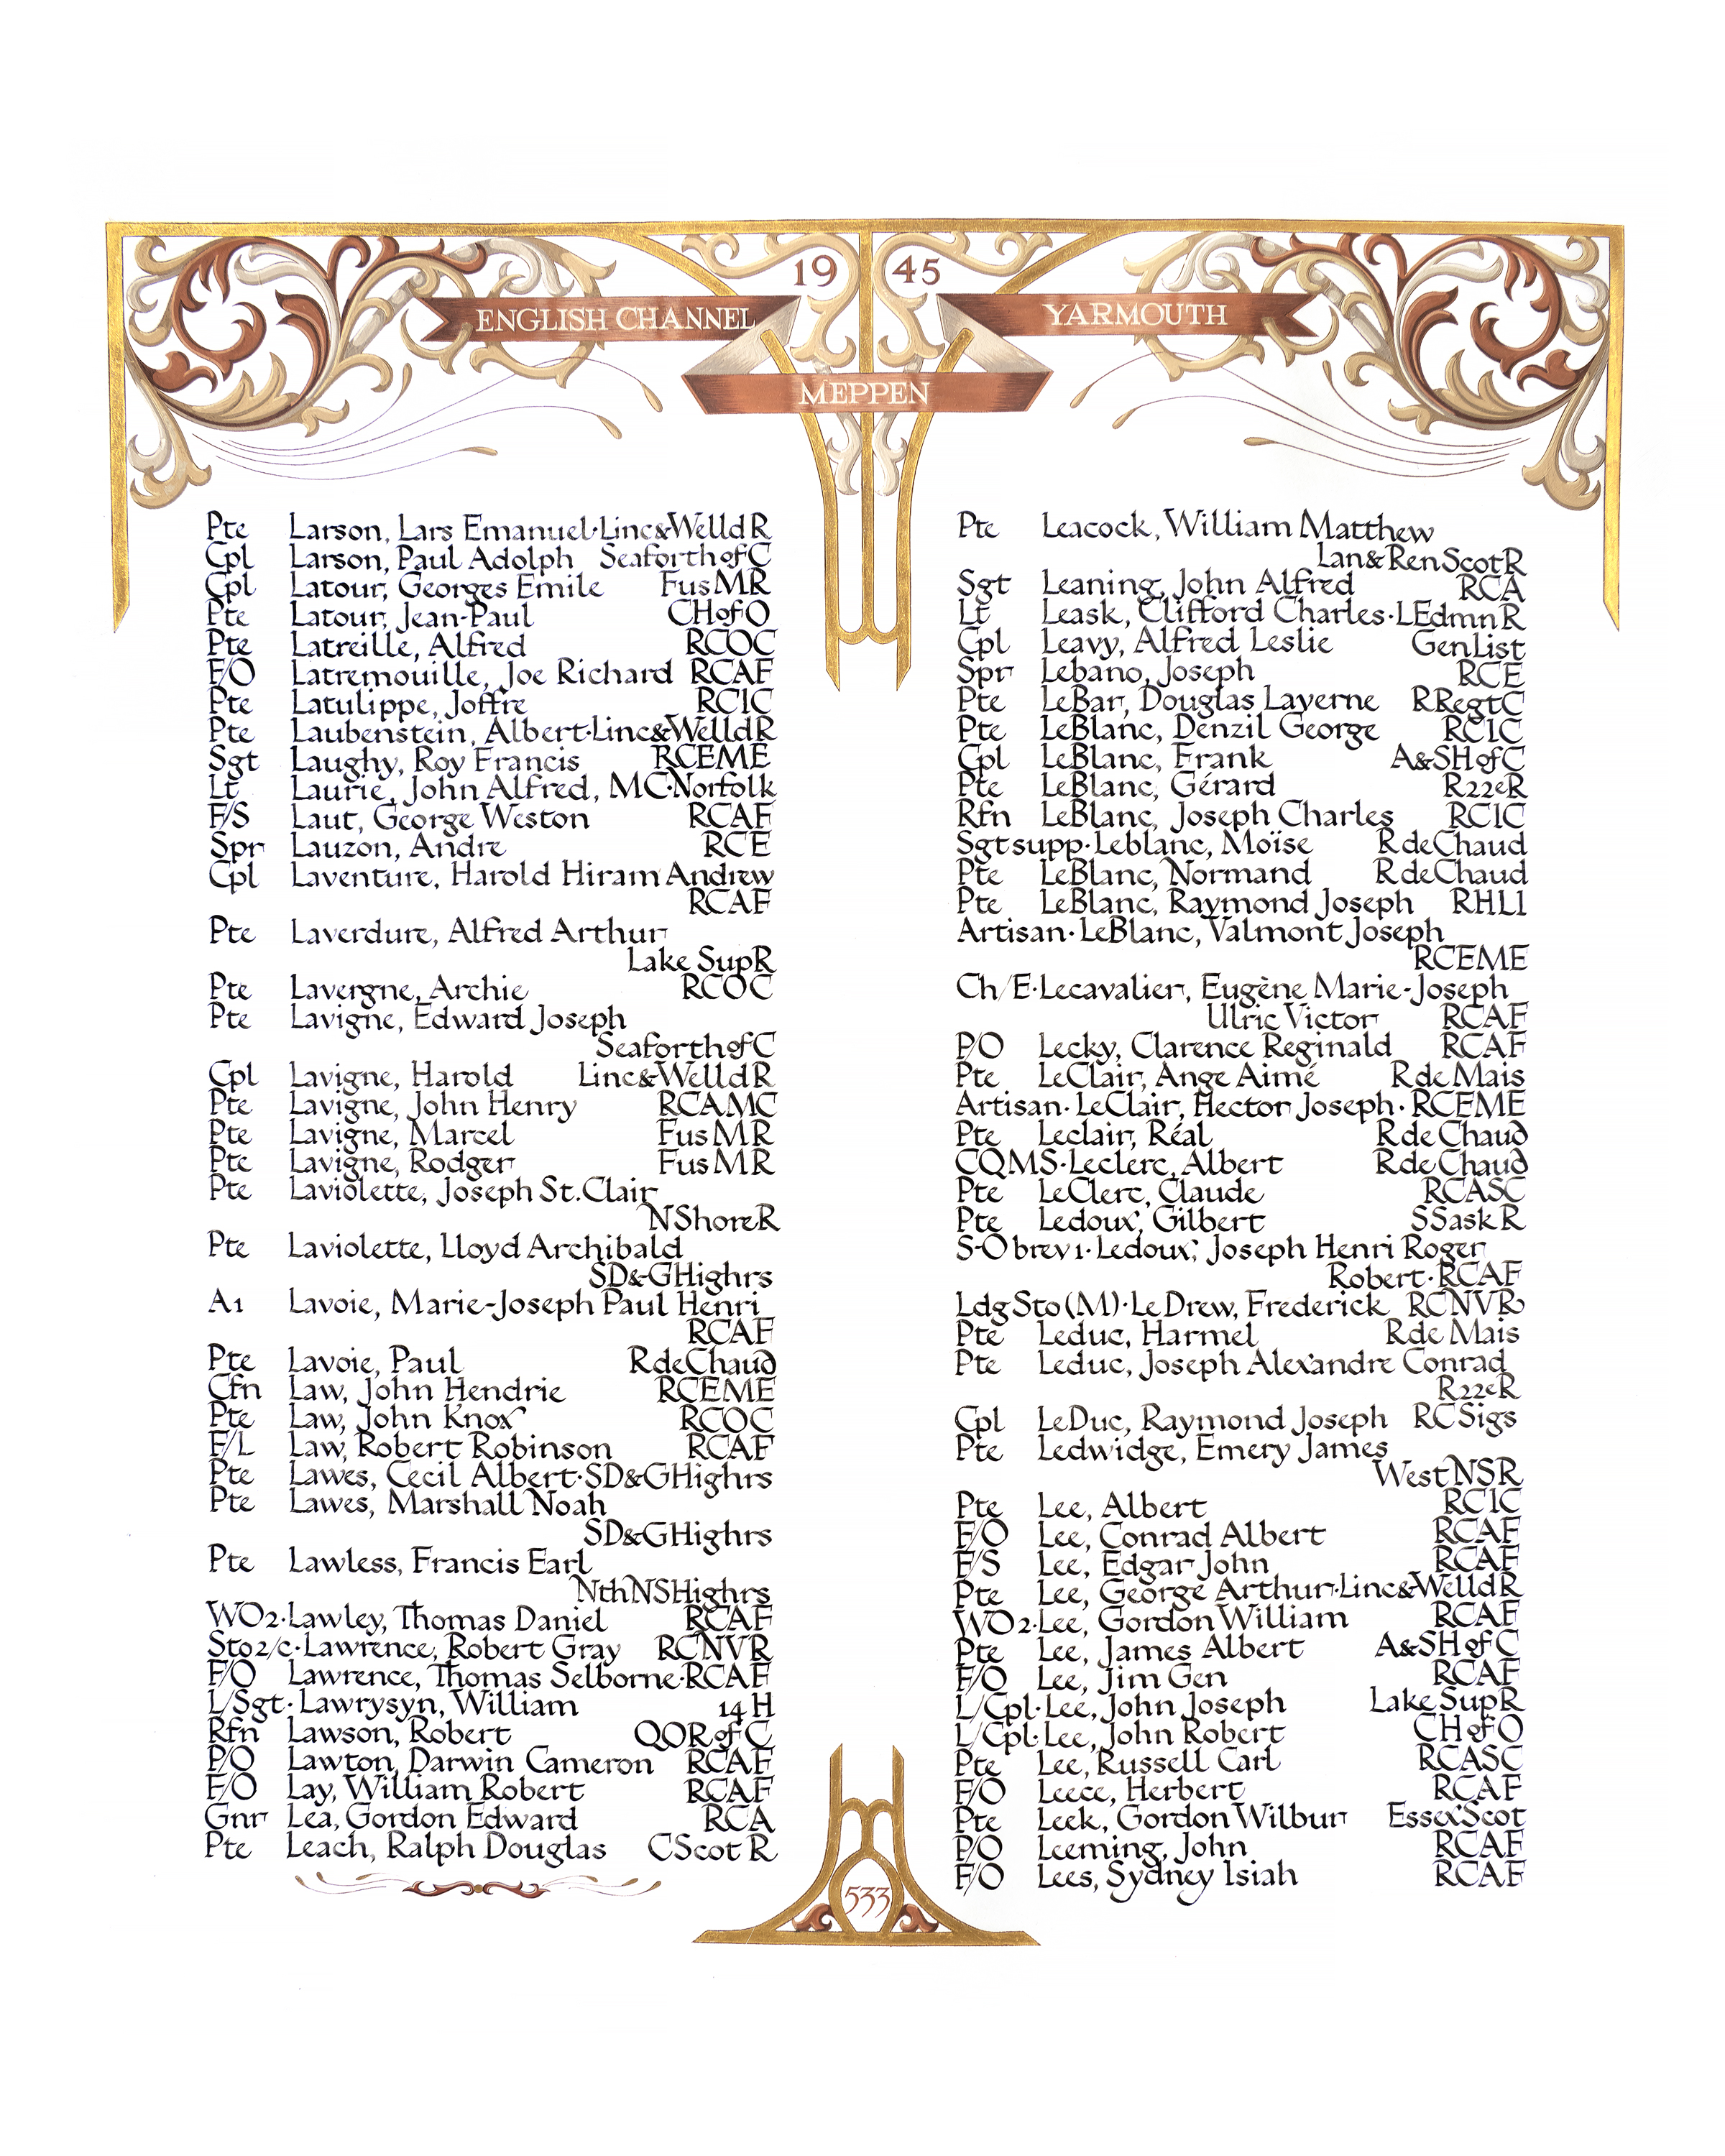 19 45
ENGLISH CHANNEL
YARMOUTH
MEPPEN
Pte Larson, Lars Emanuel·Linc&WelldR
Cpl Larson, Paul Adolph SeaforthofC
Cpl Latour, Georges Emile FusMR
Pte Latour, Jean-Paul CHofO
Pte Latreille, Alfred RCOC
F/O Latremouille, Joe Richard RCAF
Pte Latulippe, Joffre RCIC
Pte Laubenstein, Albert·Linc&WelldR
Sgt Laughy, Roy Francis RCEME
Lt Laurie, John Alfred, MC·Norfolk
F/S Laut, George Weston RCAF
Spr Lauzon, Andre RCE
Cpl Laventure, Harold Hiram Andrew
RCAF
Pte Laverdure, Alfred Arthur
Lake SupR
Pte Lavergne, Archie RCOC
Pte Lavigne, Edward Joseph
SeaforthofC
Cpl Lavigne, Harold Linc&WelldR
Pte Lavigne, John Henry RCAMC
Pte Lavigne, Marcel FusMR
Pte Lavigne, Rodger FusMR
Pte Laviolette, Joseph St.Clair
NShoreR
Pte Laviolette, Lloyd Archibald
SD&GHighrs
A1 Lavoie, Marie-Joseph Paul Henri
RCAF
Pte Lavoie, Paul RdeChaud
Cfn Law, John Hendrie RCEME
Pte Law, John Knox RCOC
F/L Law, Robert Robinson RCAF
Pte Lawes, Cecil Albert·SD&GHighrs
Pte Lawes, Marshall Noah
SD&GHighrs
Pte Lawless, Francis Earl
NthNSHighrs
WO2·Lawley, Thomas Daniel RCAF
Sto2/c·Lawrence, Robert Gray RCNVR
F/O Lawrence, Thomas Selborne·RCAF
L/Sgt·Lawrysyn, William 14H
Rfn Lawson, Robert QORofC
P/O Lawton, Darwin Cameron RCAF
F/O Lay, William Robert RCAF
Gnr Lea, Gordon Edward RCA
Pte Leach, Ralph Douglas CScotR
Pte Leacock, William Matthew
Lan&RenScotR
Sgt Leaning, John Alfred RCA
Lt Leask, Clifford Charles·LEdmnR
Cpl Leavy, Alfred Leslie GenList
Spr Lebano, Joseph RCE
Pte LeBar, Douglas Laverne RRegtC
Pte LeBlanc, Denzil George RCIC
Cpl LeBlanc, Frank A&SHofC
Pte LeBlanc, Gérard R22eR
Rfn LeBlanc, Joseph Charles RCIC
Sgtsupp·Leblanc, Moïse RdeChaud
Pte LeBlanc, Normand RdeChaud
Pte LeBlanc, Raymond Joseph RHLI
Artisan·LeBlanc, Valmont Joseph
RCEME
Ch/E·Lecavalier, Eugène Marie-Joseph
Ulric Victor RCAF
P/O Lecky, Clarence Reginald RCAF
Pte LeClair, Ange Aimé RdeMais
Artisan·LeClair, Hector Joseph·RCEME
Pte Leclair, Réal RdeChaud
CQMS·Leclerc, Albert RdeChaud
Pte LeClerc, Claude RCASC
Pte Ledoux, Gilbert SSaskR
S-Obrev1·Ledoux, Joseph Henri Roger
Robert·RCAF
LdgSto(M)·LeDrew, Frederick RCNVR
Pte Leduc, Harmel RdeMais
Pte Leduc, Joseph Alexandre Conrad
R22eR
Cpl LeDuc, Raymond Joseph RCSigs
Pte Ledwidge, Emery James
WestNSR
Pte Lee, Albert RCIC
F/O Lee, Conrad Albert RCAF
F/S Lee, Edgar John RCAF
Pte Lee, George Arthur·Linc&WelldR
WO2·Lee, Gordon William RCAF
Pte Lee, James Albert A&SHofC
F/O Lee, Jim Gen RCAF
L/Cpl·Lee, John Joseph Lake SupR
L/Cpl·Lee, John Robert CHofO
Pte Lee, Russell Carl RCASC
F/O Leece, Herbert RCAF
Pte Leek, Gordon Wilbur EssexScot
P/O Leeming, John RCAF
F/O Lees, Sydney Isiah RCAF
533